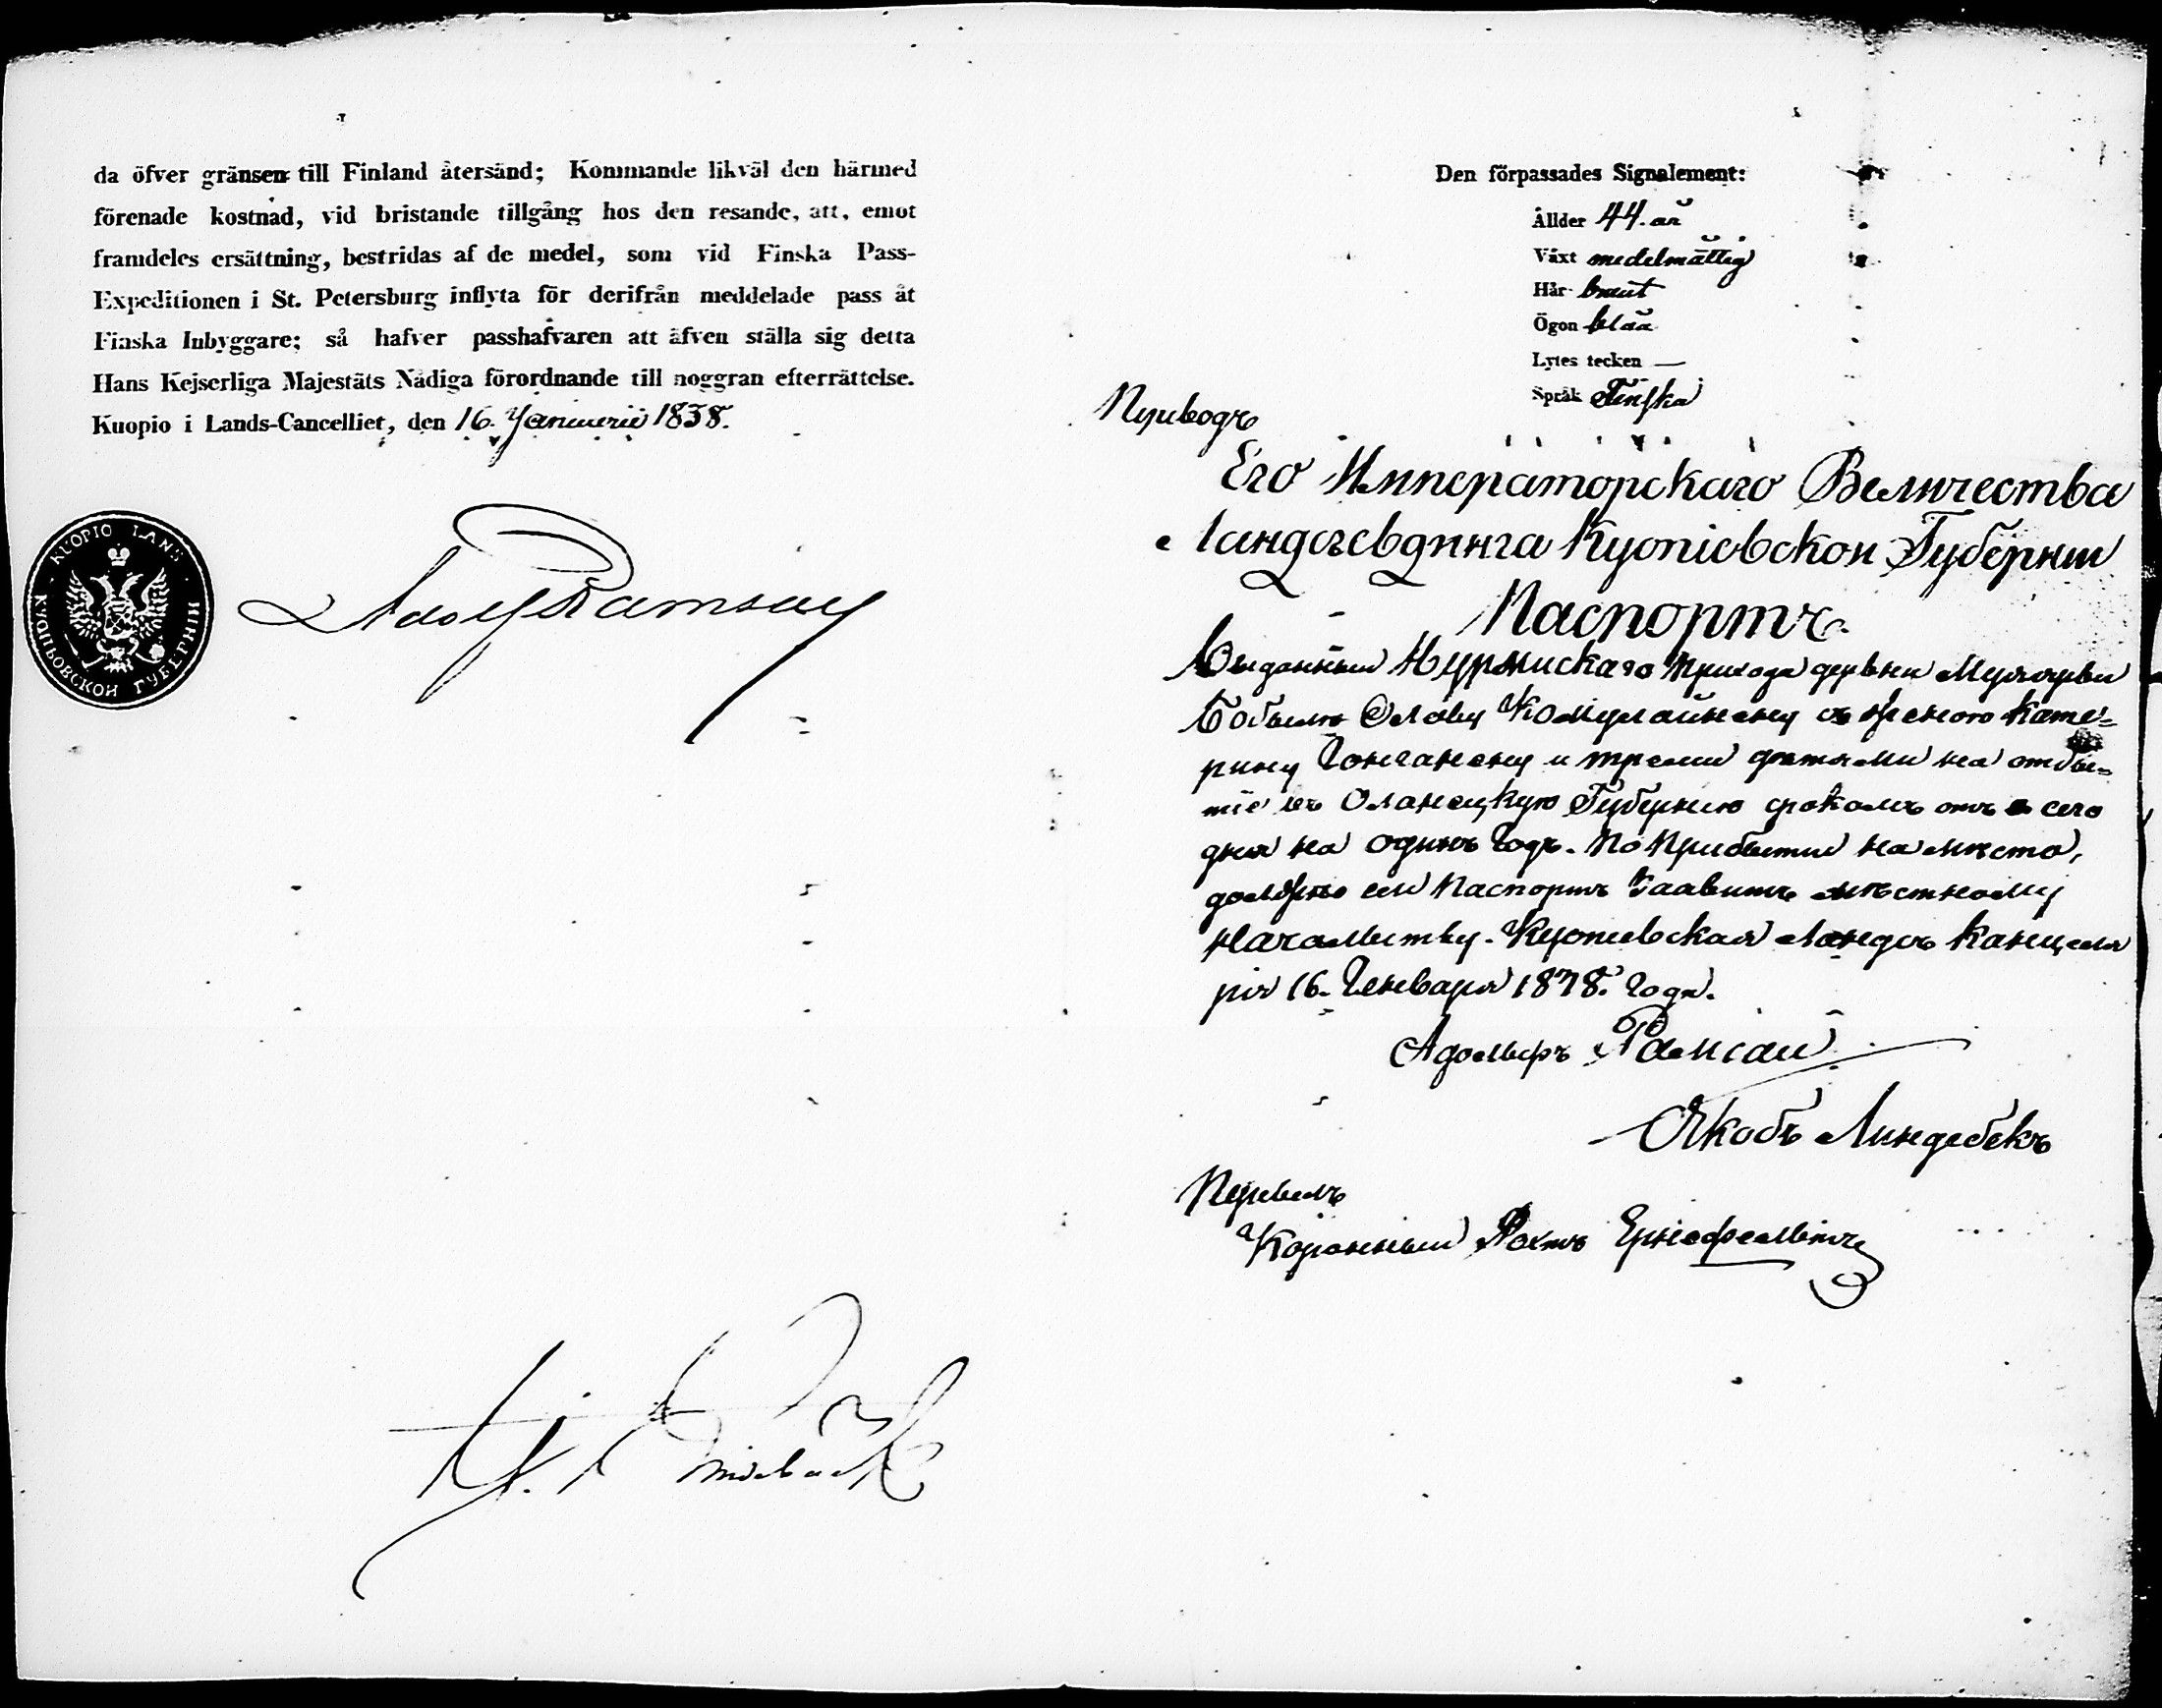 da öfver gränsen till Finland återsänd; Kommande likväl den härmed
förenade kostnad, vid bristande tillgång hos den resande, att, emot
framdeles ersättning, bestridas af de medel, som vid Finska Pass-
Expeditionen i St. Petersburg inflyta för derifrån meddelade pass åt
Finska Inbyggare; så hafver passhafvaren att äfven ställa sig detta
Hans Kejserliga Majestäts Nådiga förordnande till noggran efterrättelse.
Kuopio i Lands-Cancelliet, den 16. Januarii 1838.
KUOPIO LÄNS
КУОПЬОВСКОЙ ГУБЕРНІИ
Adolf Ramsay
Den förpassades Signalement:
Ållder 44. år
Växt medelmåttig
Hår brunt
Ögon blåa
Lytes tecken —
Språk Finska
Переводъ
Его Императорскаго Величества
Ландсгевдинга Куопіовской Губерніи
Паспортъ.
Выданный Нурмискаго прихода деревни
Бобылю Олову съ женою Кате=
рину и тремя детями на отбы=
тіе въ Олонецкую Губернію срокомъ отъ сего
дня на одинъ годъ. По прибытии на место,
должно сей Паспортъ явить местному
Начальству. Куопиовская Ландсъ Канцеля
рія 16. Генваря 1838. года.
Адольфъ Рамсай
Якобъ Линдебекъ
Перевелъ
Коронный Фохтъ Ернефельтъ